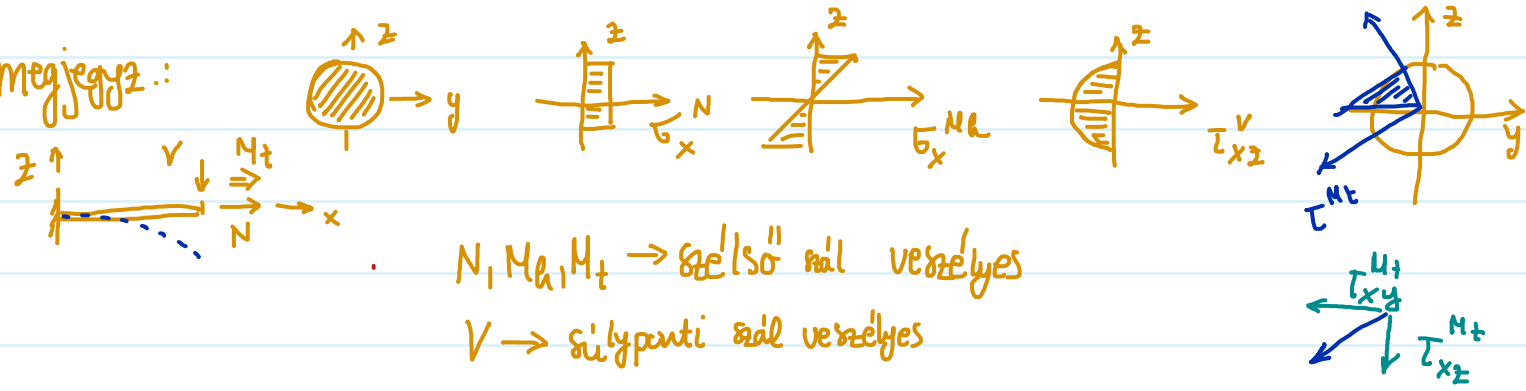 megjegyz.:
z
y
z
σ_x^N
z
σ_x^{Mh}
z
τ_{xz}^V
z
y
τ^{Mt}
z
V
Mt
N
x
N, Mh, Mt → szélső szál veszélyes
V → súlyponti szál veszélyes
τ_{xy}^{Mt}
τ_{xz}^{Mt}